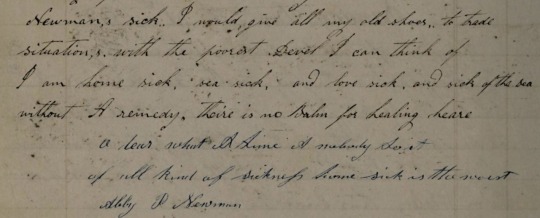 Newman,s sick. I would, give all my old shoes, to trade
situation,s, with the poorest Devel I can think of.
I am home sick, sea sick, and love sick, and sick of the sea
without A remedy, theire is no Balm for healing heare
O dear what A time A melody
of all kind of sickness home sick is the worst
Abby D Newman